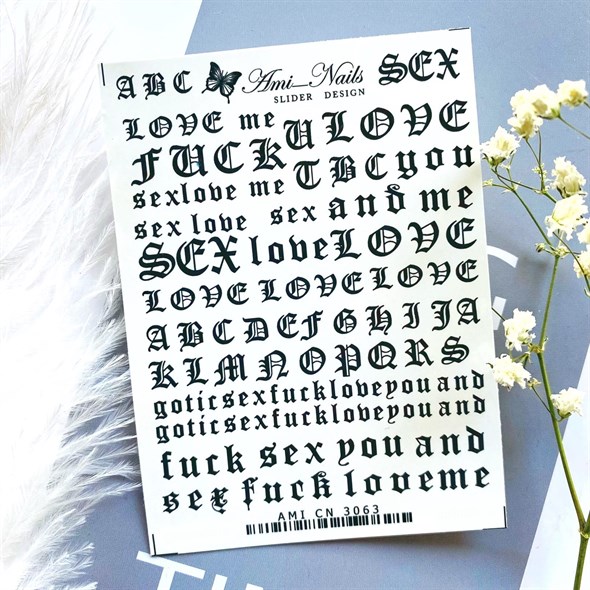 ABC Ami_Nails SEX
SLIDER DESIGN
LOVE me ULOVE
FUCK TBC you
sexlove me
sex love sex and me
SEX love LOVE
LOVE LOVE LOVE LOVE
ABCDEFGHIJA
KLMNOPQRS
goticsexfuckloveyouand
goticsexfuckloveyouand
fuck sex you and
sex fuck loveme
AMI CN 3063